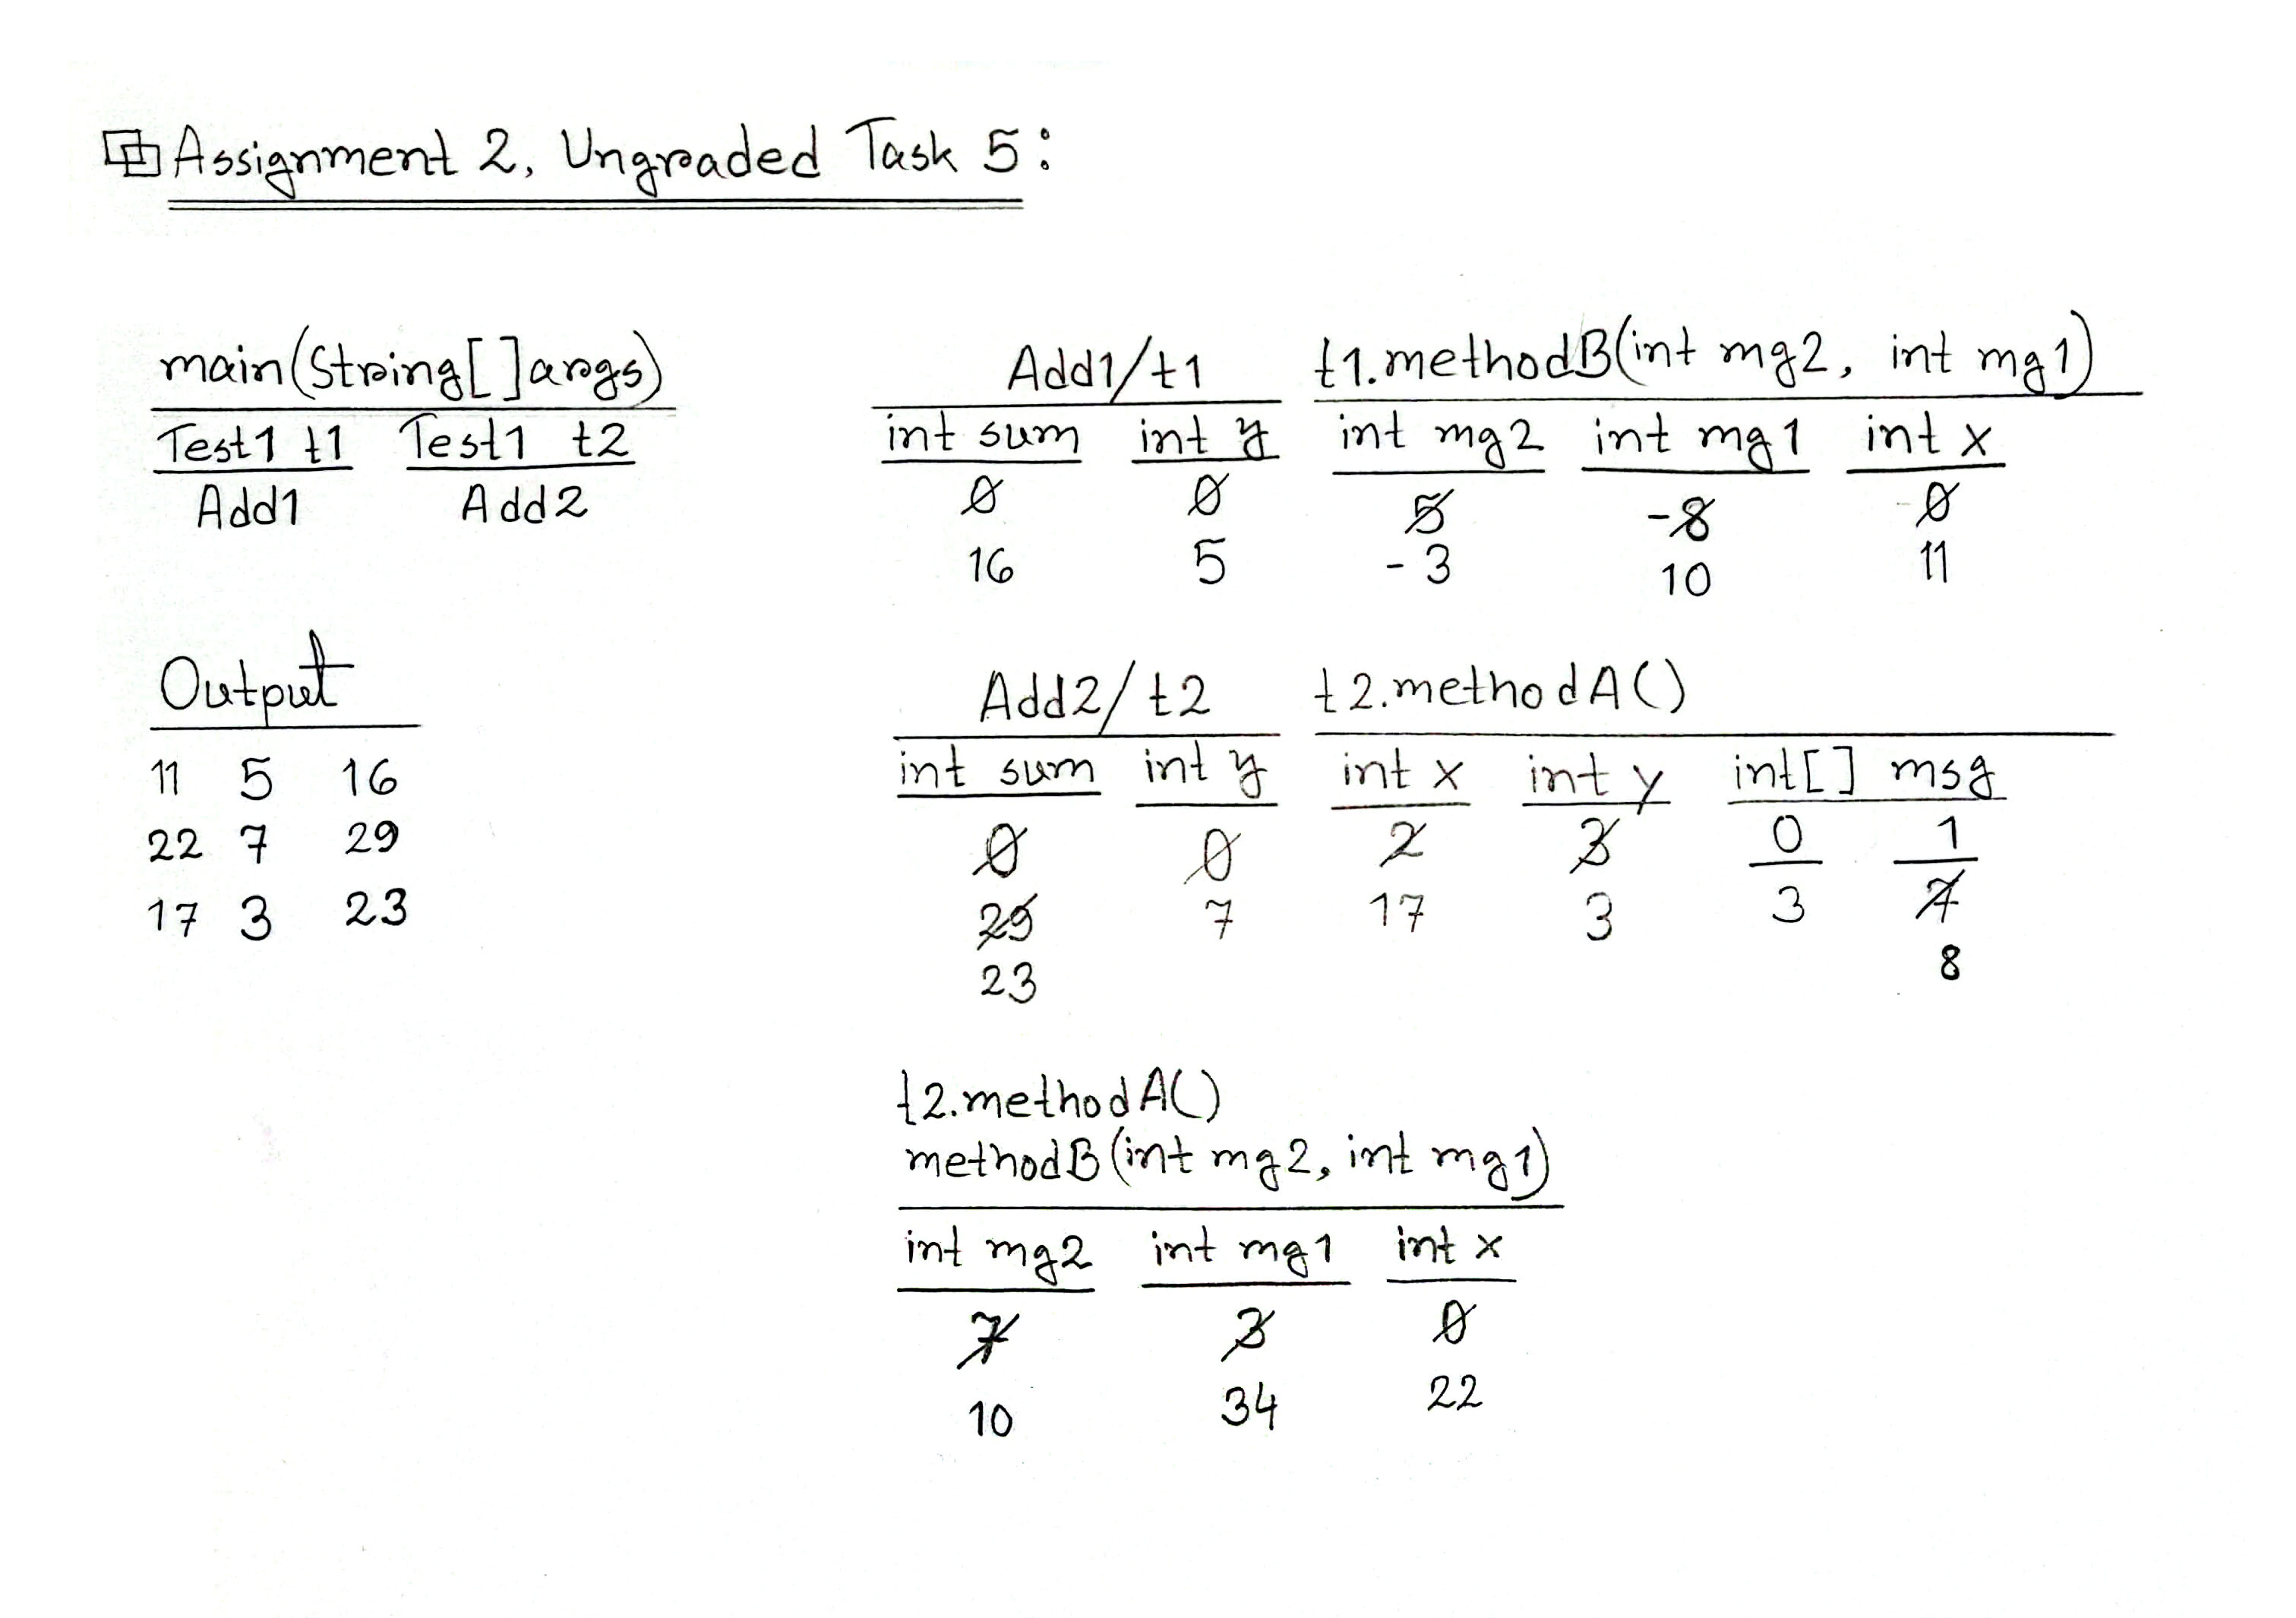 Assignment 2, Ungraded Task 5:
main(String[]args)
Test1 t1 Test1 t2
Add1 Add2
Output
11 5 16
22 7 29
17 3 23
Add1/t1
int sum int y
0 0
16 5
t1.methodB(int mg2, int mg1)
int mg2 int mg1 int x
5 -8 0
-3 10 11
Add2/t2
int sum int y
0 0
29 7
23
t2.methodA()
int x int y int[] msg
2 3 0 1
17 3 3 7
8
t2.methodA()
methodB(int mg2, int mg1)
int mg2 int mg1 int x
7 3 0
10 34 22